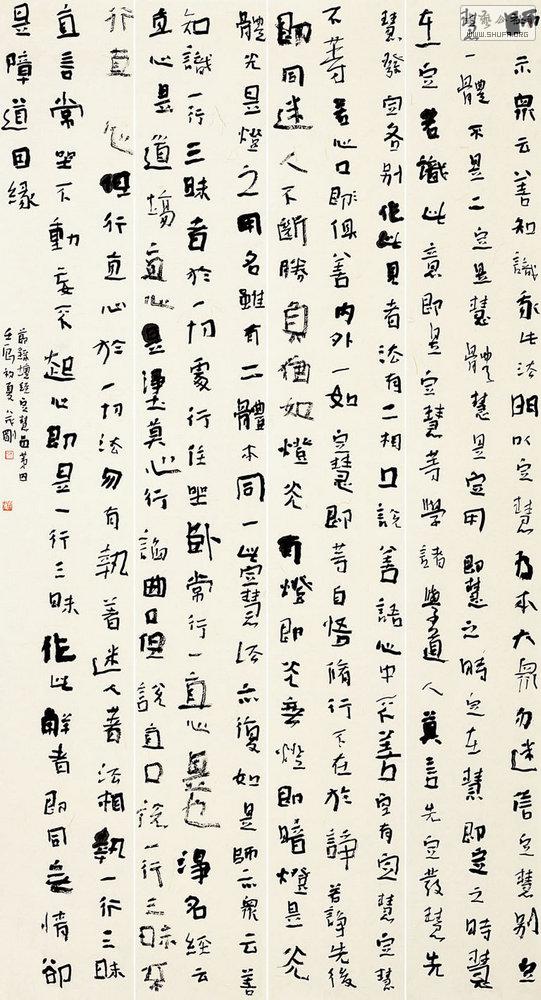 示衆云善知識我此法門以定慧為本大衆勿迷信定慧別定
慧一體不是二定是慧體慧是定用即慧之時定在慧即定之時慧
在定若識此意即是定慧等學諸學道人莫言先定發慧先
慧發定各別作此見者法有二相口說善語心中不善空有定慧定慧
不等若心口即俱善內外一如定慧即等自悟脩行不在於諍若諍先後
即同迷人不斷勝負猶如燈光有燈即光無燈即暗燈是光
體光是燈之用名雖有二體本同一此定慧法亦復如是師示衆云善
知識一行三昧者於一切處行住坐卧常行一直心是也淨名經云
直心是道場直心是淨土莫心行諂曲口但說直口說一行三昧不
行直心但行直心於一切法勿有執著迷人著法相執一行三昧
直言常坐不動妄不起心即是一行三昧作此解者即同無情卻
是障道因緣
節録壇經定慧品第四
壬寅初夏
WWW.SHUFA.ORG